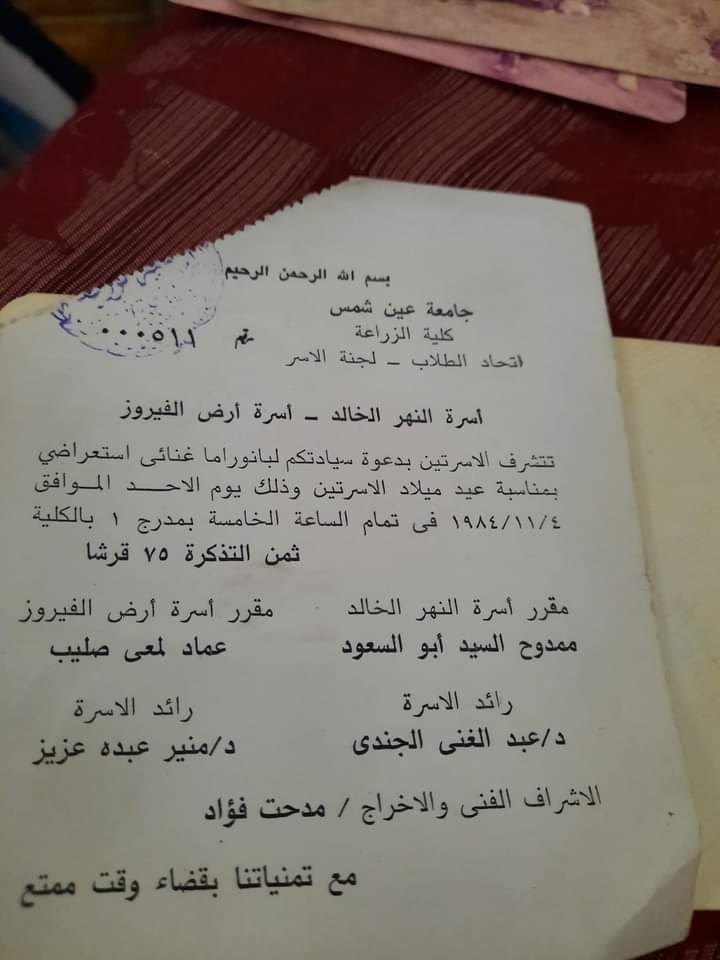 بسم الله الرحمن الرحيم
جامعة عين شمس
كلية الزراعة
رقم ٠٠٠٥١١
اتحاد الطلاب ــ لجنة الاسر
أسرة النهر الخالد ــ أسرة أرض الفيروز
تتشرف الاسرتين بدعوة سيادتكم لبانوراما غنائى استعراضي
بمناسبة عيد ميلاد الاسرتين وذلك يوم الاحـــد المـوافق
١٩٨٤/١١/٤ فى تمام الساعة الخامسة بمدرج ١ بالكلية
ثمن التذكرة ٧٥ قرشا
مقرر أسرة النهر الخالد
ممدوح السيد أبو السعود
مقرر أسرة أرض الفيروز
عماد لمعى صليب
رائد الاسرة
د/عبد الغنى الجندى
رائد الاسرة
د/منير عبده عزيز
الاشراف الفنى والاخراج / مدحت فؤاد
مع تمنياتنا بقضاء وقت ممتع